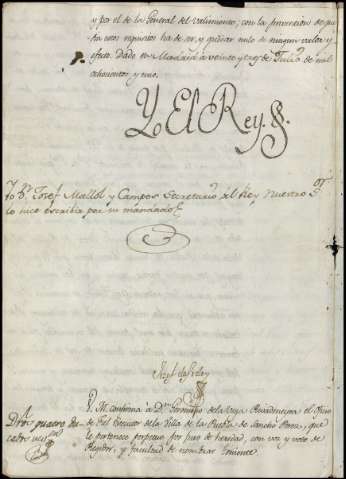 y por el de la General del Valimiento, con la prevencion de que
sin estos requisitos ha de ser, y quedar nulo de ningun valor y
efecto. Dado en Madrid à veinte y tres de Julio de mil
ochocientos y uno.
Yo El Rey.
Yo Dn. Josef Mallol y Campos Secretario del Rey Nuestro Sor.
lo hice escribir por su mandado
V. M. confirma á Dn. Geronimo de la Vega el Oficio
de Fiel Executor de la Villa de la Puebla de Sancho Perez, que
le pertenece perpetuo por juro de heredad, con voz y voto de
Regidor, y facultad de nombrar Teniente.